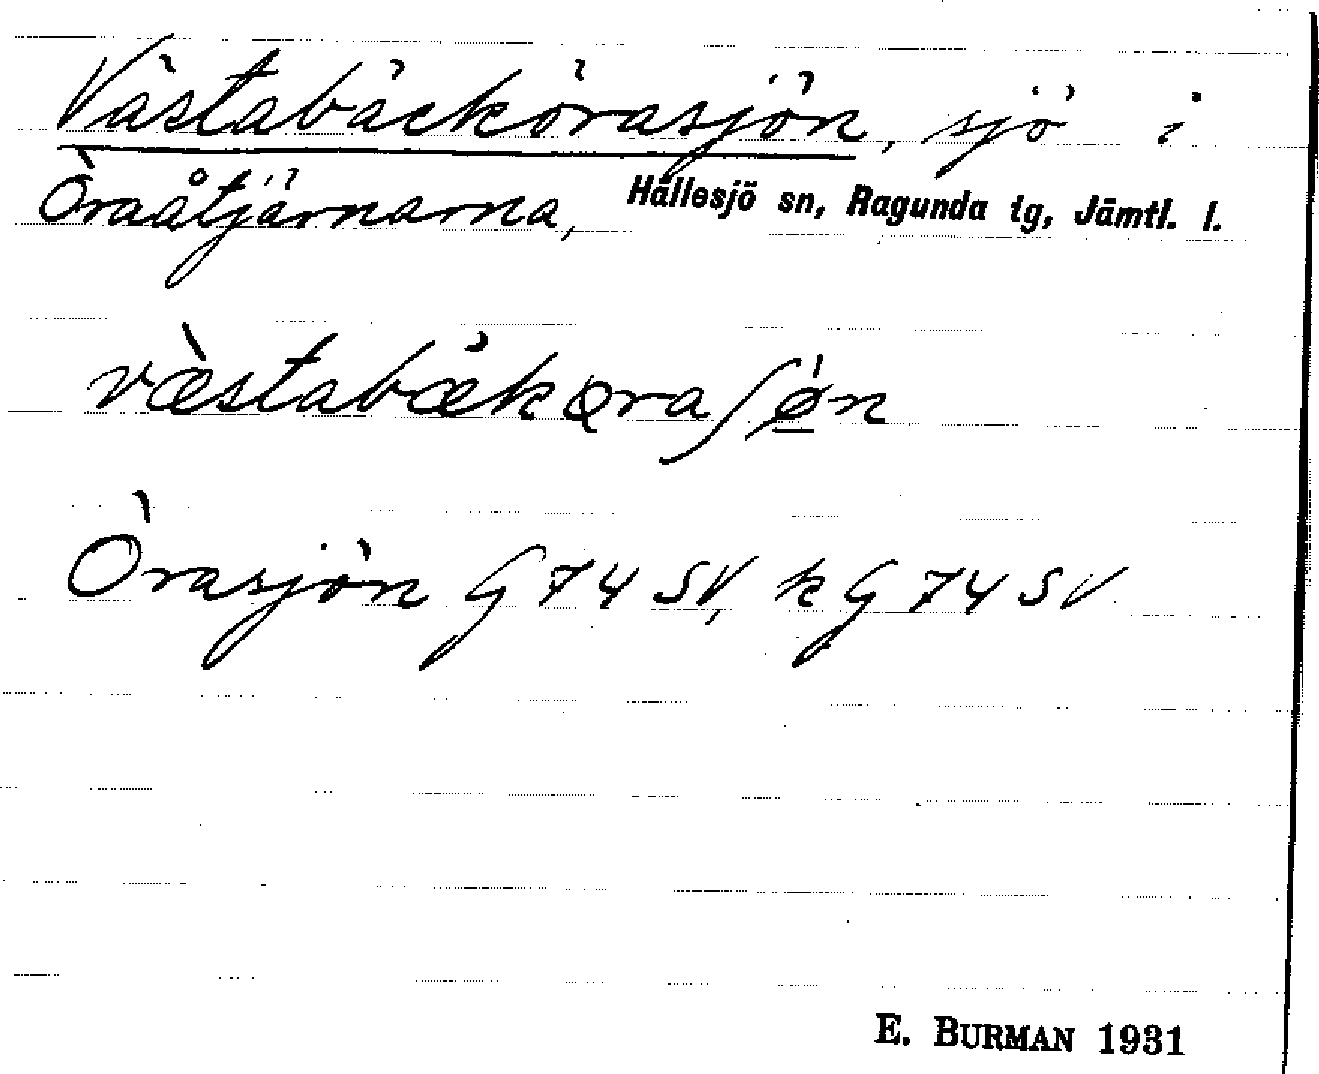 Västabäckörasjön, sjö i
Öraåtjärnarna, Hällesjö sn, Ragunda tg, Jämtl. l.
væ̀stabǽkǫraʃǿ̱n
Örasjön G 74 SV, k G 74 SV
E. BURMAN 1931